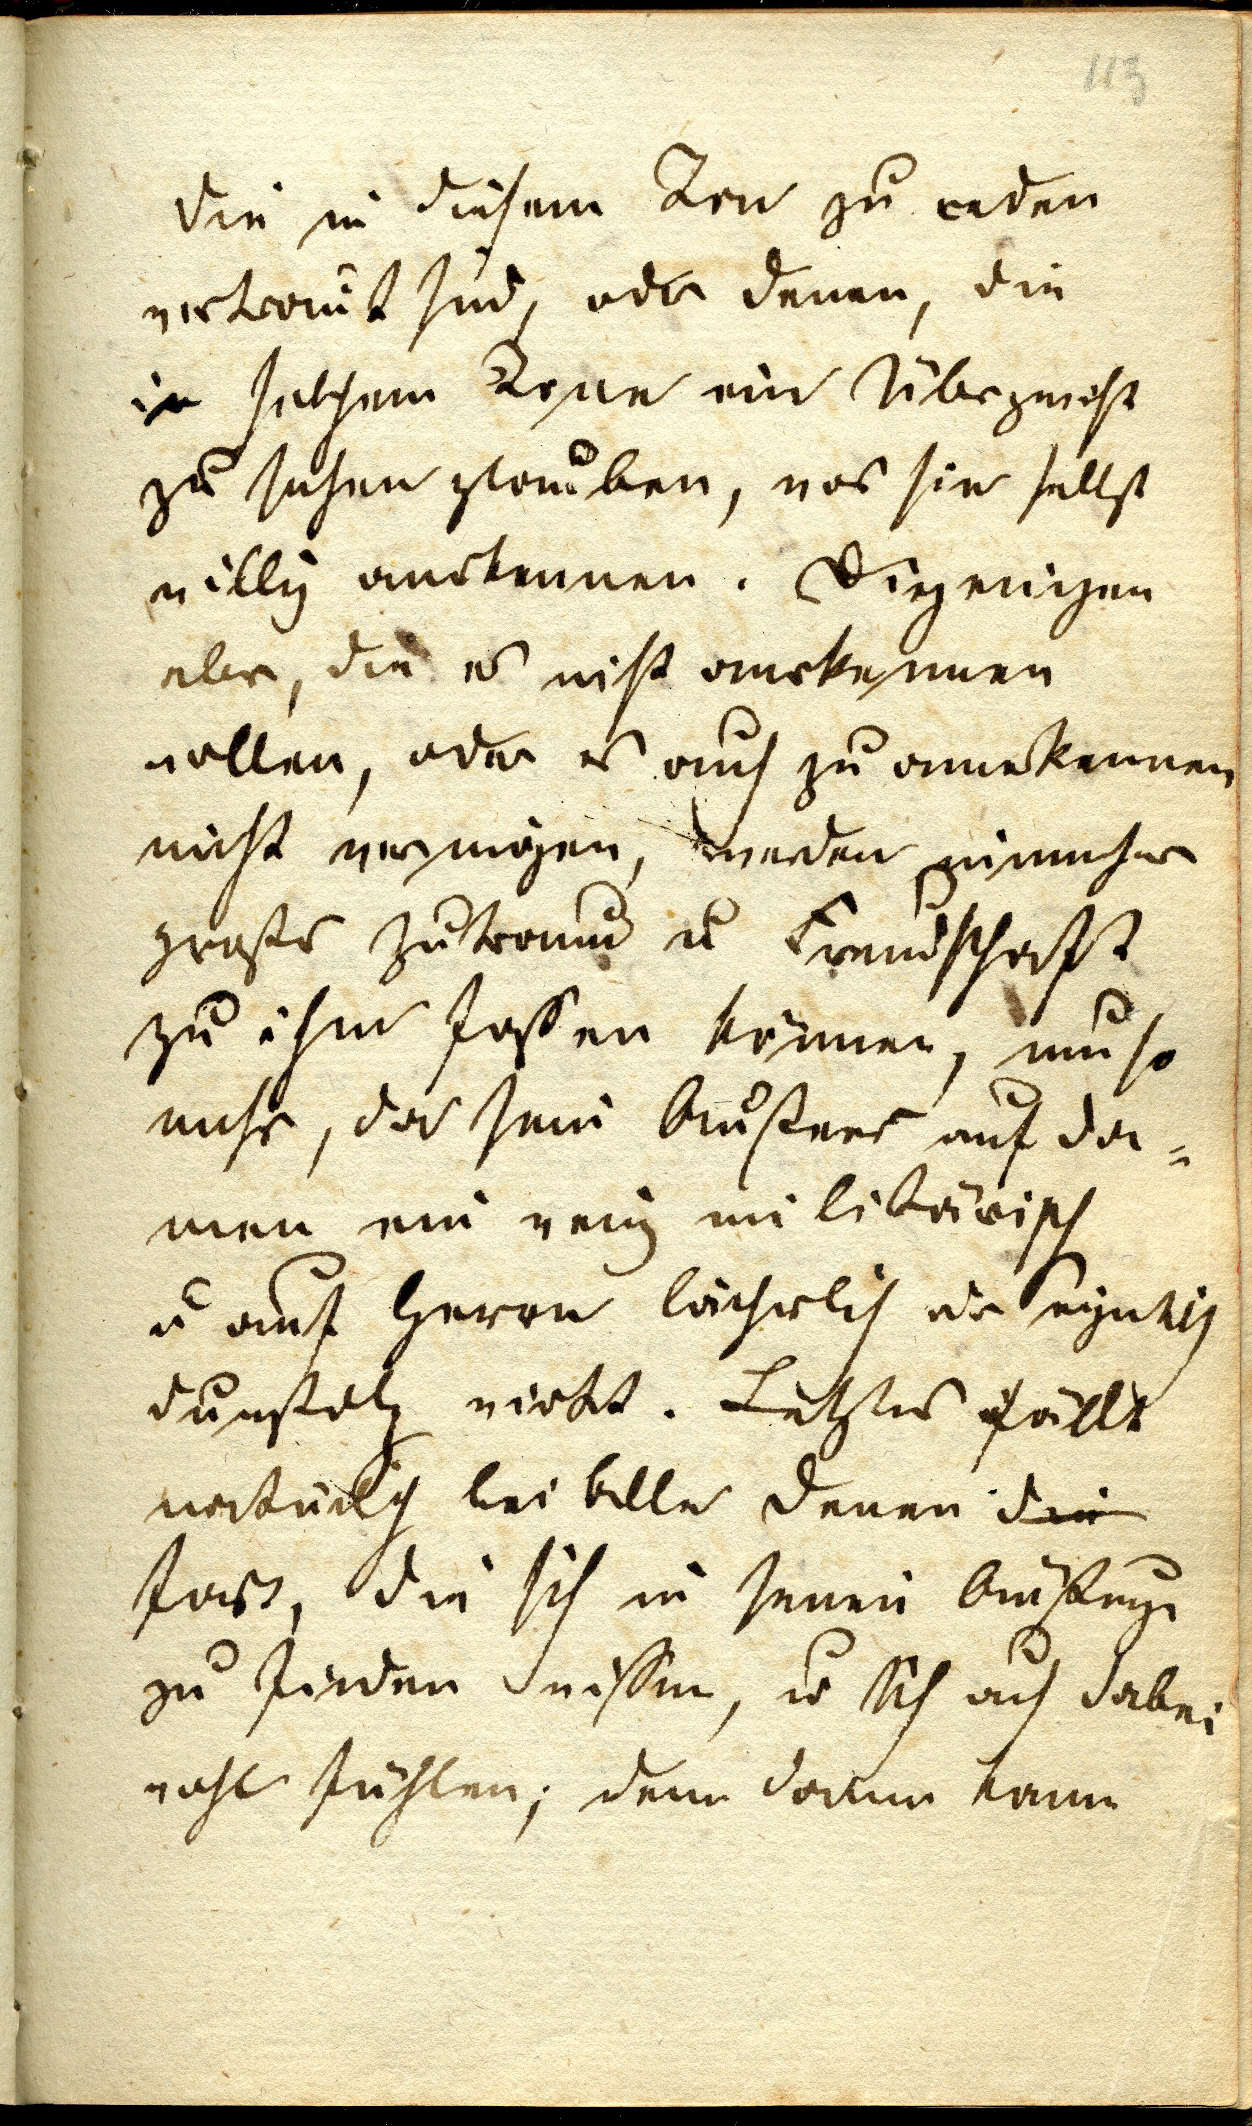 113
die in diesem Ton zu reden
vertraut sind, oder denen, die
in solchem Tone ein Übergewicht
zu sehen glauben, was sie selbst
willig anerkennen. Diejenigen
aber, die es nicht anerkennen
wollen, oder es auch zu anerkennen
nicht vermögen, werden nimmer
große Zutraun u Freundschaft
zu ihm fassen können, um so
mehr, da sein Äußeres auf Da-
men ein wenig militärisch
u auf Herren lächerlich oder
wirkt. Letztes fällt
natürlich bei alle denen die
fort, die sich in seinen
zu finden wissen, u sich auch dabei
wohl fühlen; denn dann kann